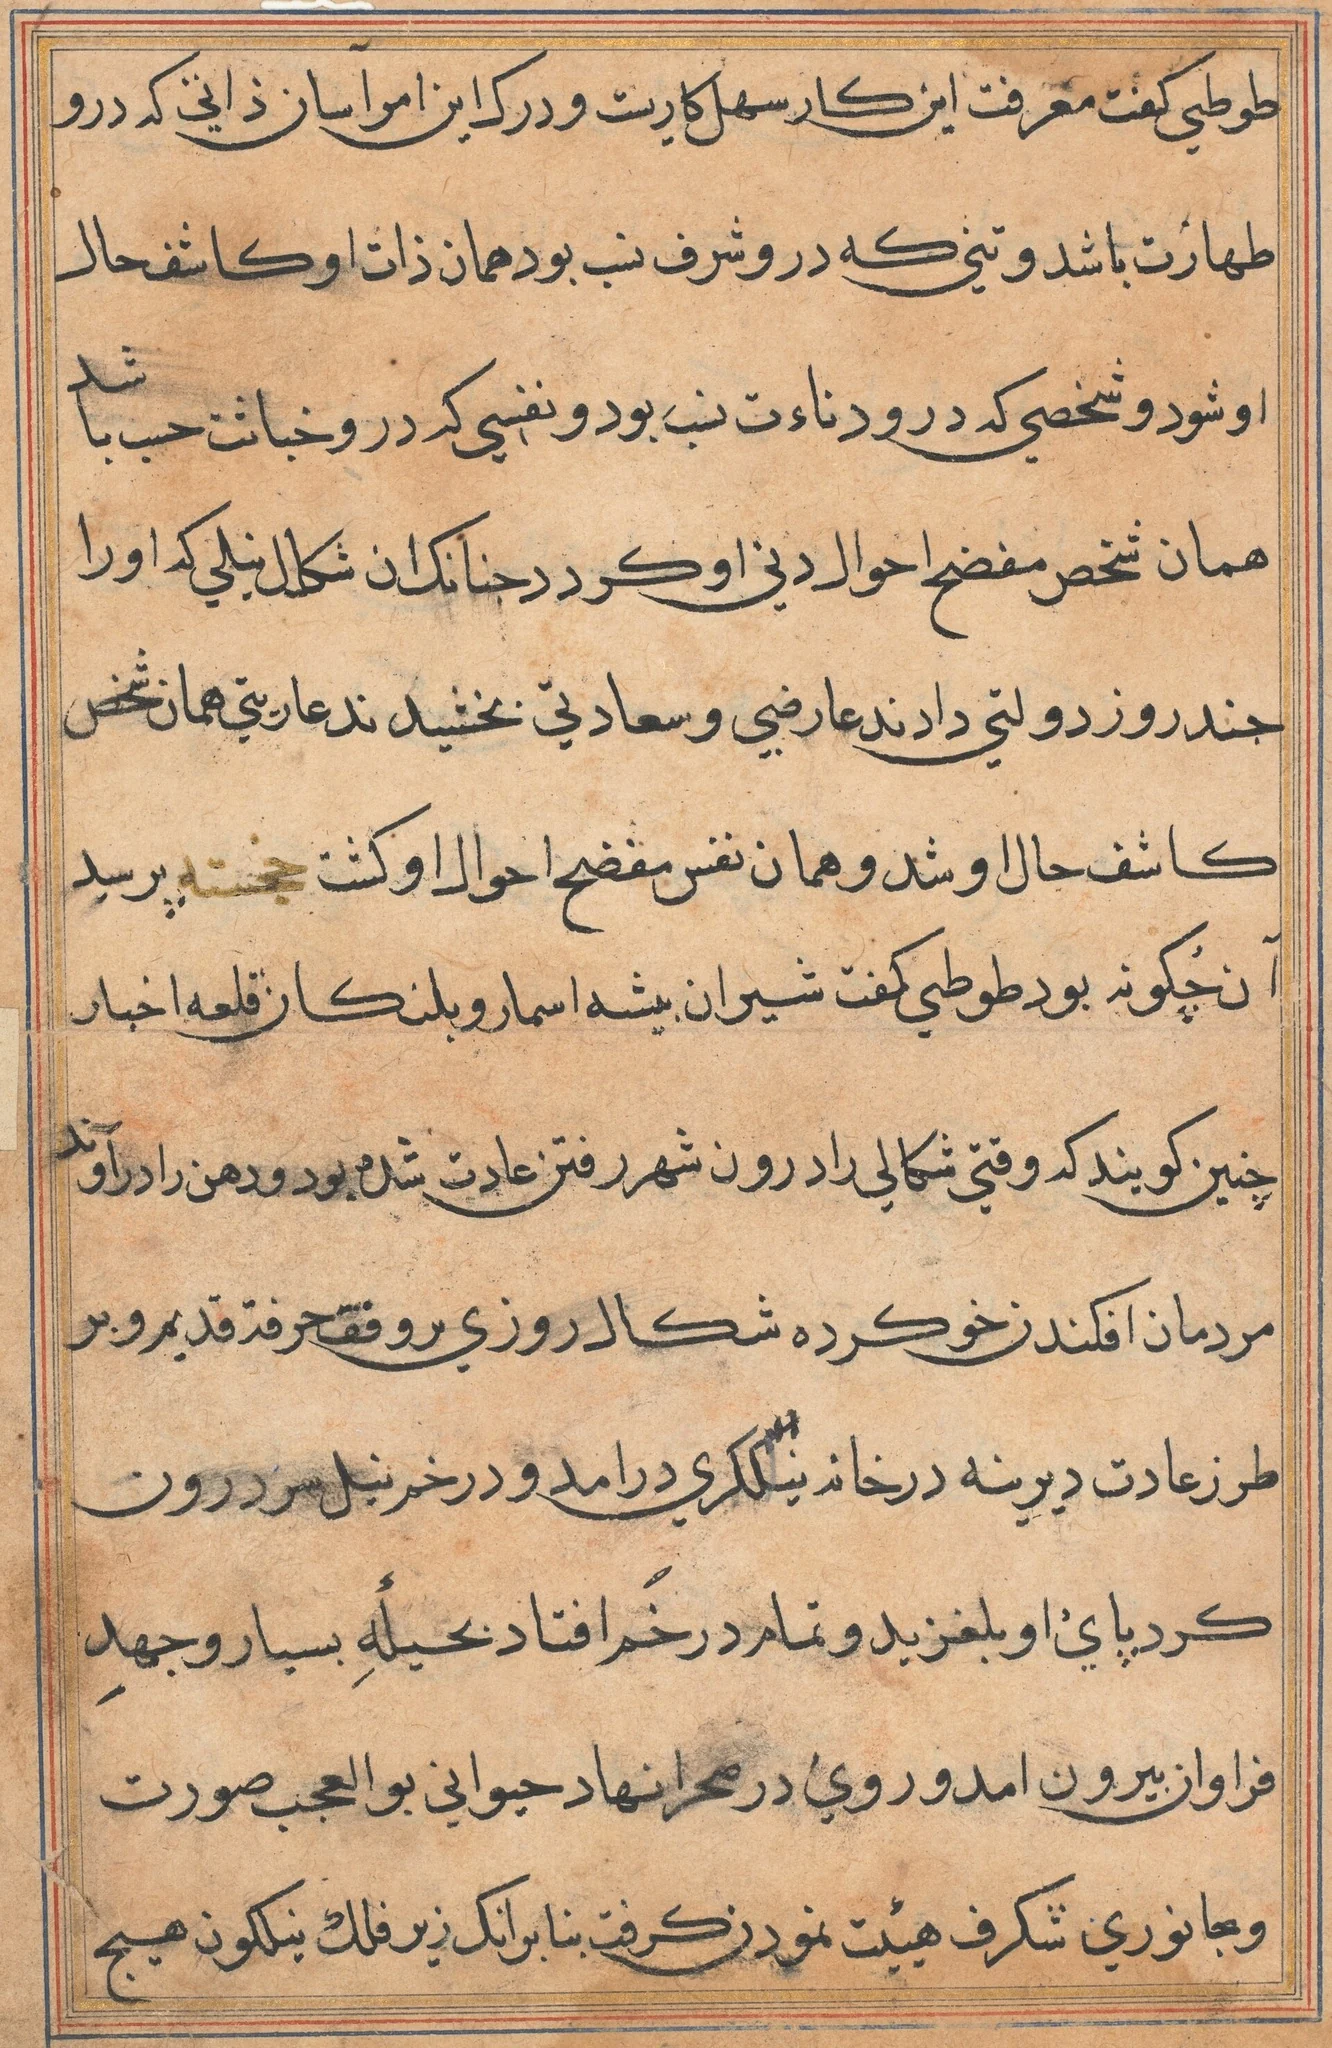 طوطي كفت معرفت اين كار سهل كاريست و درك اين امر آسان ذاتي كه درو
طهارت باشد و تني كه درو شرف نسب بود همان ذات او كاشف حال
او شود و شخصي كه درو دناءت نسب بود و نفسي كه درو خباثت حسب باشد
همان شخص مفضح احوال دني او كردد جنانك ان شكال نيلي كه او را
جند روز دولتي دادند عارضي و سعادتي بخشيدند عاريتي همان شخص
كاشف حال او شد و همان نفس مفضح احوال او كشت خجسته پرسيد
آن چكونه بود طوطي كفت شيران بيشه اسمار و بلنكان قلعه اخبار
چنين كويند كه وقتي شكالي را درون شهر رفتن عادت شده بود و دهن را در آوند
مردمان افكندن خو كرده شكال روزي بر وفق حرفة قديم و بر
طرز عادت ديرينه در خانه نيلكري درامد و در خم نيل سر درون
كرد پاي او بلغزيد و تمام در خم افتاد بحيلهٔ بسيار و جهد
فراوان بيرون امد و روي در صحرا نهاد حيواني بوالعجب صورت
و جانوري شكرف هيئت نمودن كرفت بنابرانك زير فلك نيلكون هيج